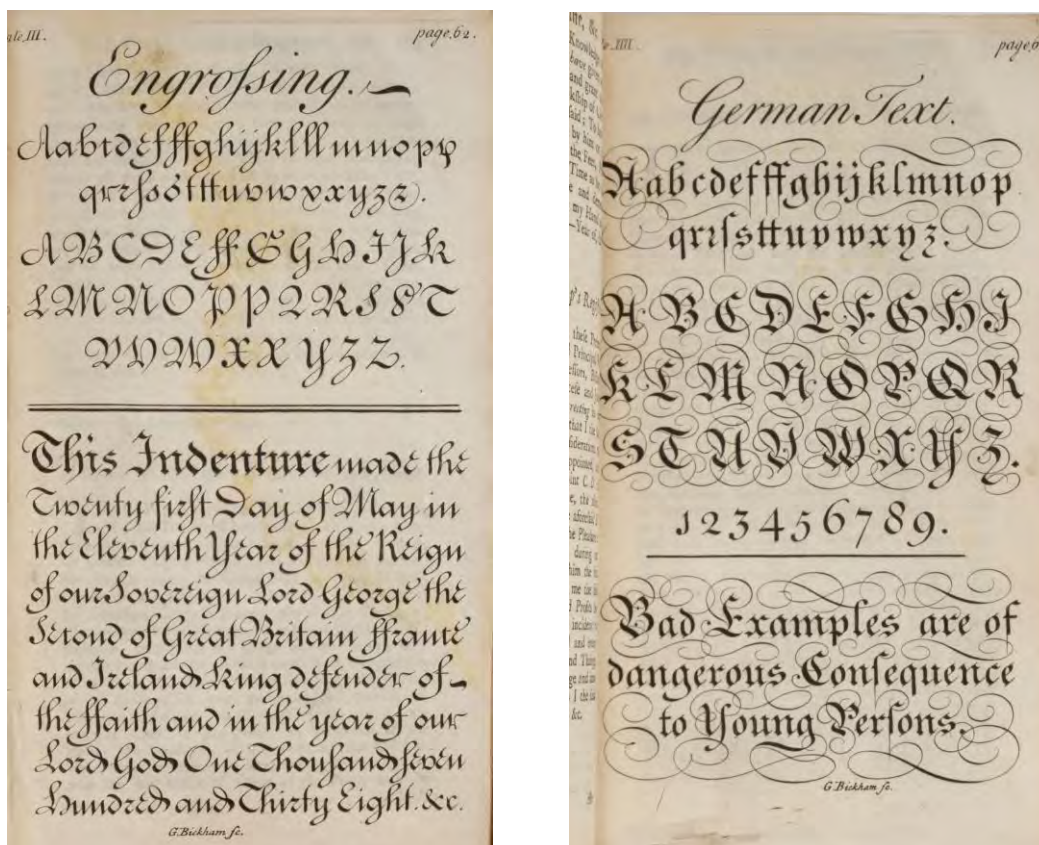 ate.III.
page.62.
Engroſsing.
Aabcdefffghijklll mnopp
qrrſsótttuvwvxyzz.
A B C D E ff G G H I J K
L M N O P P Q R S S T
V V W X X Y Z Z.
This Indenture made the
Twenty firſt Day of May in
the Eleventh Year of the Reign
of our Sovereign Lord George the
Second of Great Britain ffrance
and Ireland King defender of
the ffaith and in the year of our
Lord God One Thouſand ſeven
Hundred and Thirty Eight. &c.
G. Bickham ſc.
IIII.
German Text.
Aabcdefffghijklmnop
qrrſsttuvwxyz.
A B C D E F G H I
K L M N O P Q R
S T U V W X Y Z.
1 2 3 4 5 6 7 8 9.
Bad Examples are of
dangerous Conſequence
to Young Perſons.
G. Bickham ſc.